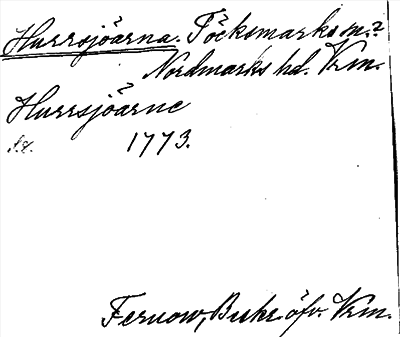 Hurrsjöarna. Töcksmarks sn.?
Nordmarks hd. Vrm.
Hurrsjöarne
1773.
Fernow, Beskr. öfv. Vrm.